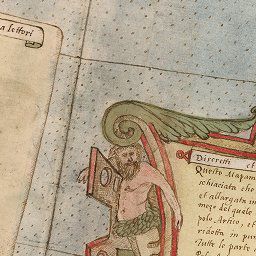 a lettori
Discretti et
Questo Mapam
schiaciata che
et alargata in
mezo del quale
polo Artico, et
ridotta in pia
tutte le parte